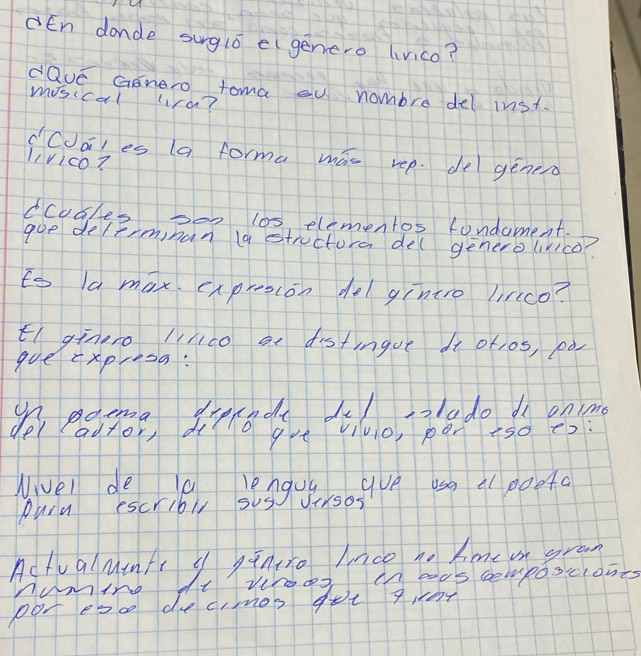 ¿En donde surgió el género lírico?
¿Qué Género toma su nombre del inst.
musical lira?
¿Cuál es la forma más rep. del género
lírico?
¿Cuáles son los elementos fundament.
que determinan la structura del género lírico?
Es la máx. expresión del género lírico?
El género lírico se distingue de otros, por
que expresa:
Un poema depende del estado de animo
del autor, de lo que vivio, por eso es:
Nivel de la lengua que usa el poeta
para escribir sus versos
Actualmente el género lírico no tiene un gran
numero de versos en sus composiciones
por eso decimos que tiene